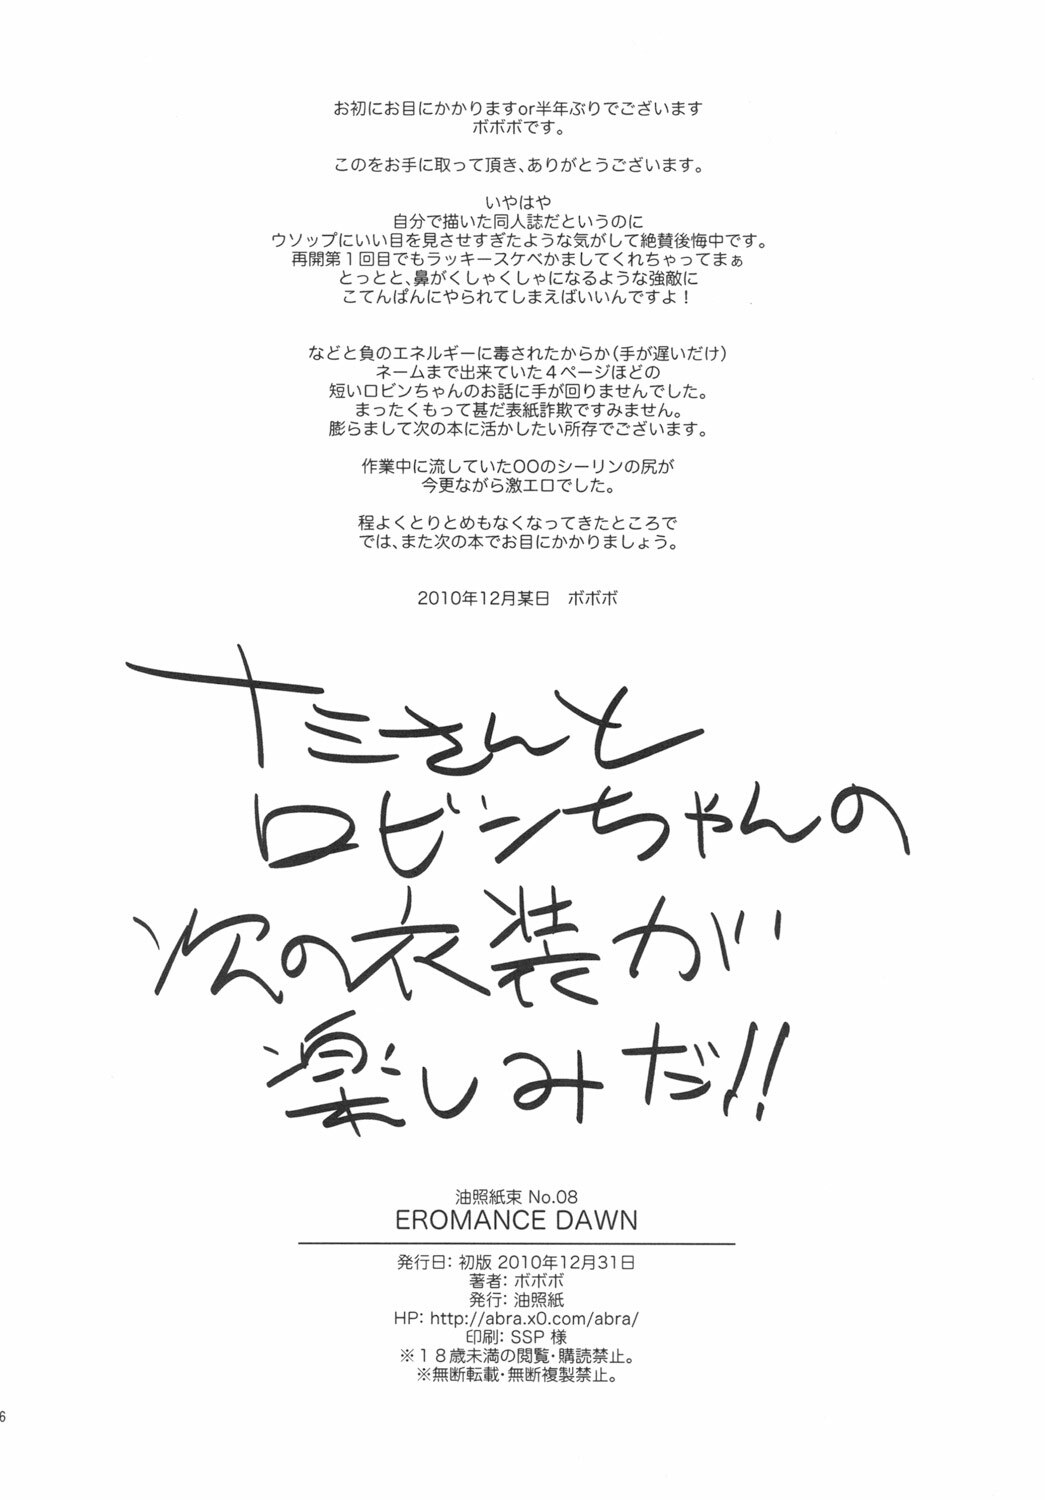 お初にお目にかかりますor半年ぶりでございます
ボボボです。
このをお手に取って頂き、ありがとうございます。
いやはや
自分で描いた同人誌だというのに
ウソップにいい目を見させすぎたような気がして絶賛後悔中です。
再開第１回目でもラッキースケベかましてくれちゃってまぁ
とっとと、鼻がくしゃくしゃになるような強敵に
こてんぱんにやられてしまえばいいんですよ！
などと負のエネルギーに毒されたからか（手が遅いだけ）
ネームまで出来ていた４ページほどの
短いロビンちゃんのお話に手が回りませんでした。
まったくもって甚だ表紙詐欺ですみません。
膨らまして次の本に活かしたい所存でございます。
作業中に流していた○○のシーリンの尻が
今更ながら激エロでした。
程よくとりとめもなくなってきたところで
では、また次の本でお目にかかりましょう。
2010年12月某日　ボボボ
ナミさんと
ロビンちゃんの
次の衣装が
楽しみだ!!
油照紙束 No.08
EROMANCE DAWN
発行日: 初版 2010年12月31日
著者: ボボボ
発行: 油照紙
HP: http://abra.x0.com/abra/
印刷: SSP 様
※１８歳未満の閲覧・購読禁止。
※無断転載・無断複製禁止。
6